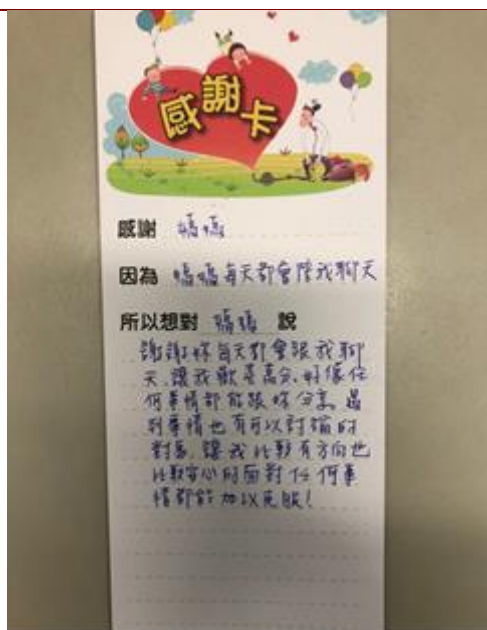 感謝卡
感謝 媽媽
因為 媽媽每天都會陪我聊天
所以想對 媽媽 說
謝謝妳每天都會跟我聊
天,讓我歡喜高分,好像任
何事情都能跟妳分享,遇
到事情也有可以討論的
對象,讓我比較有方向也
比較安心的面對任何事
情都能加以克服!